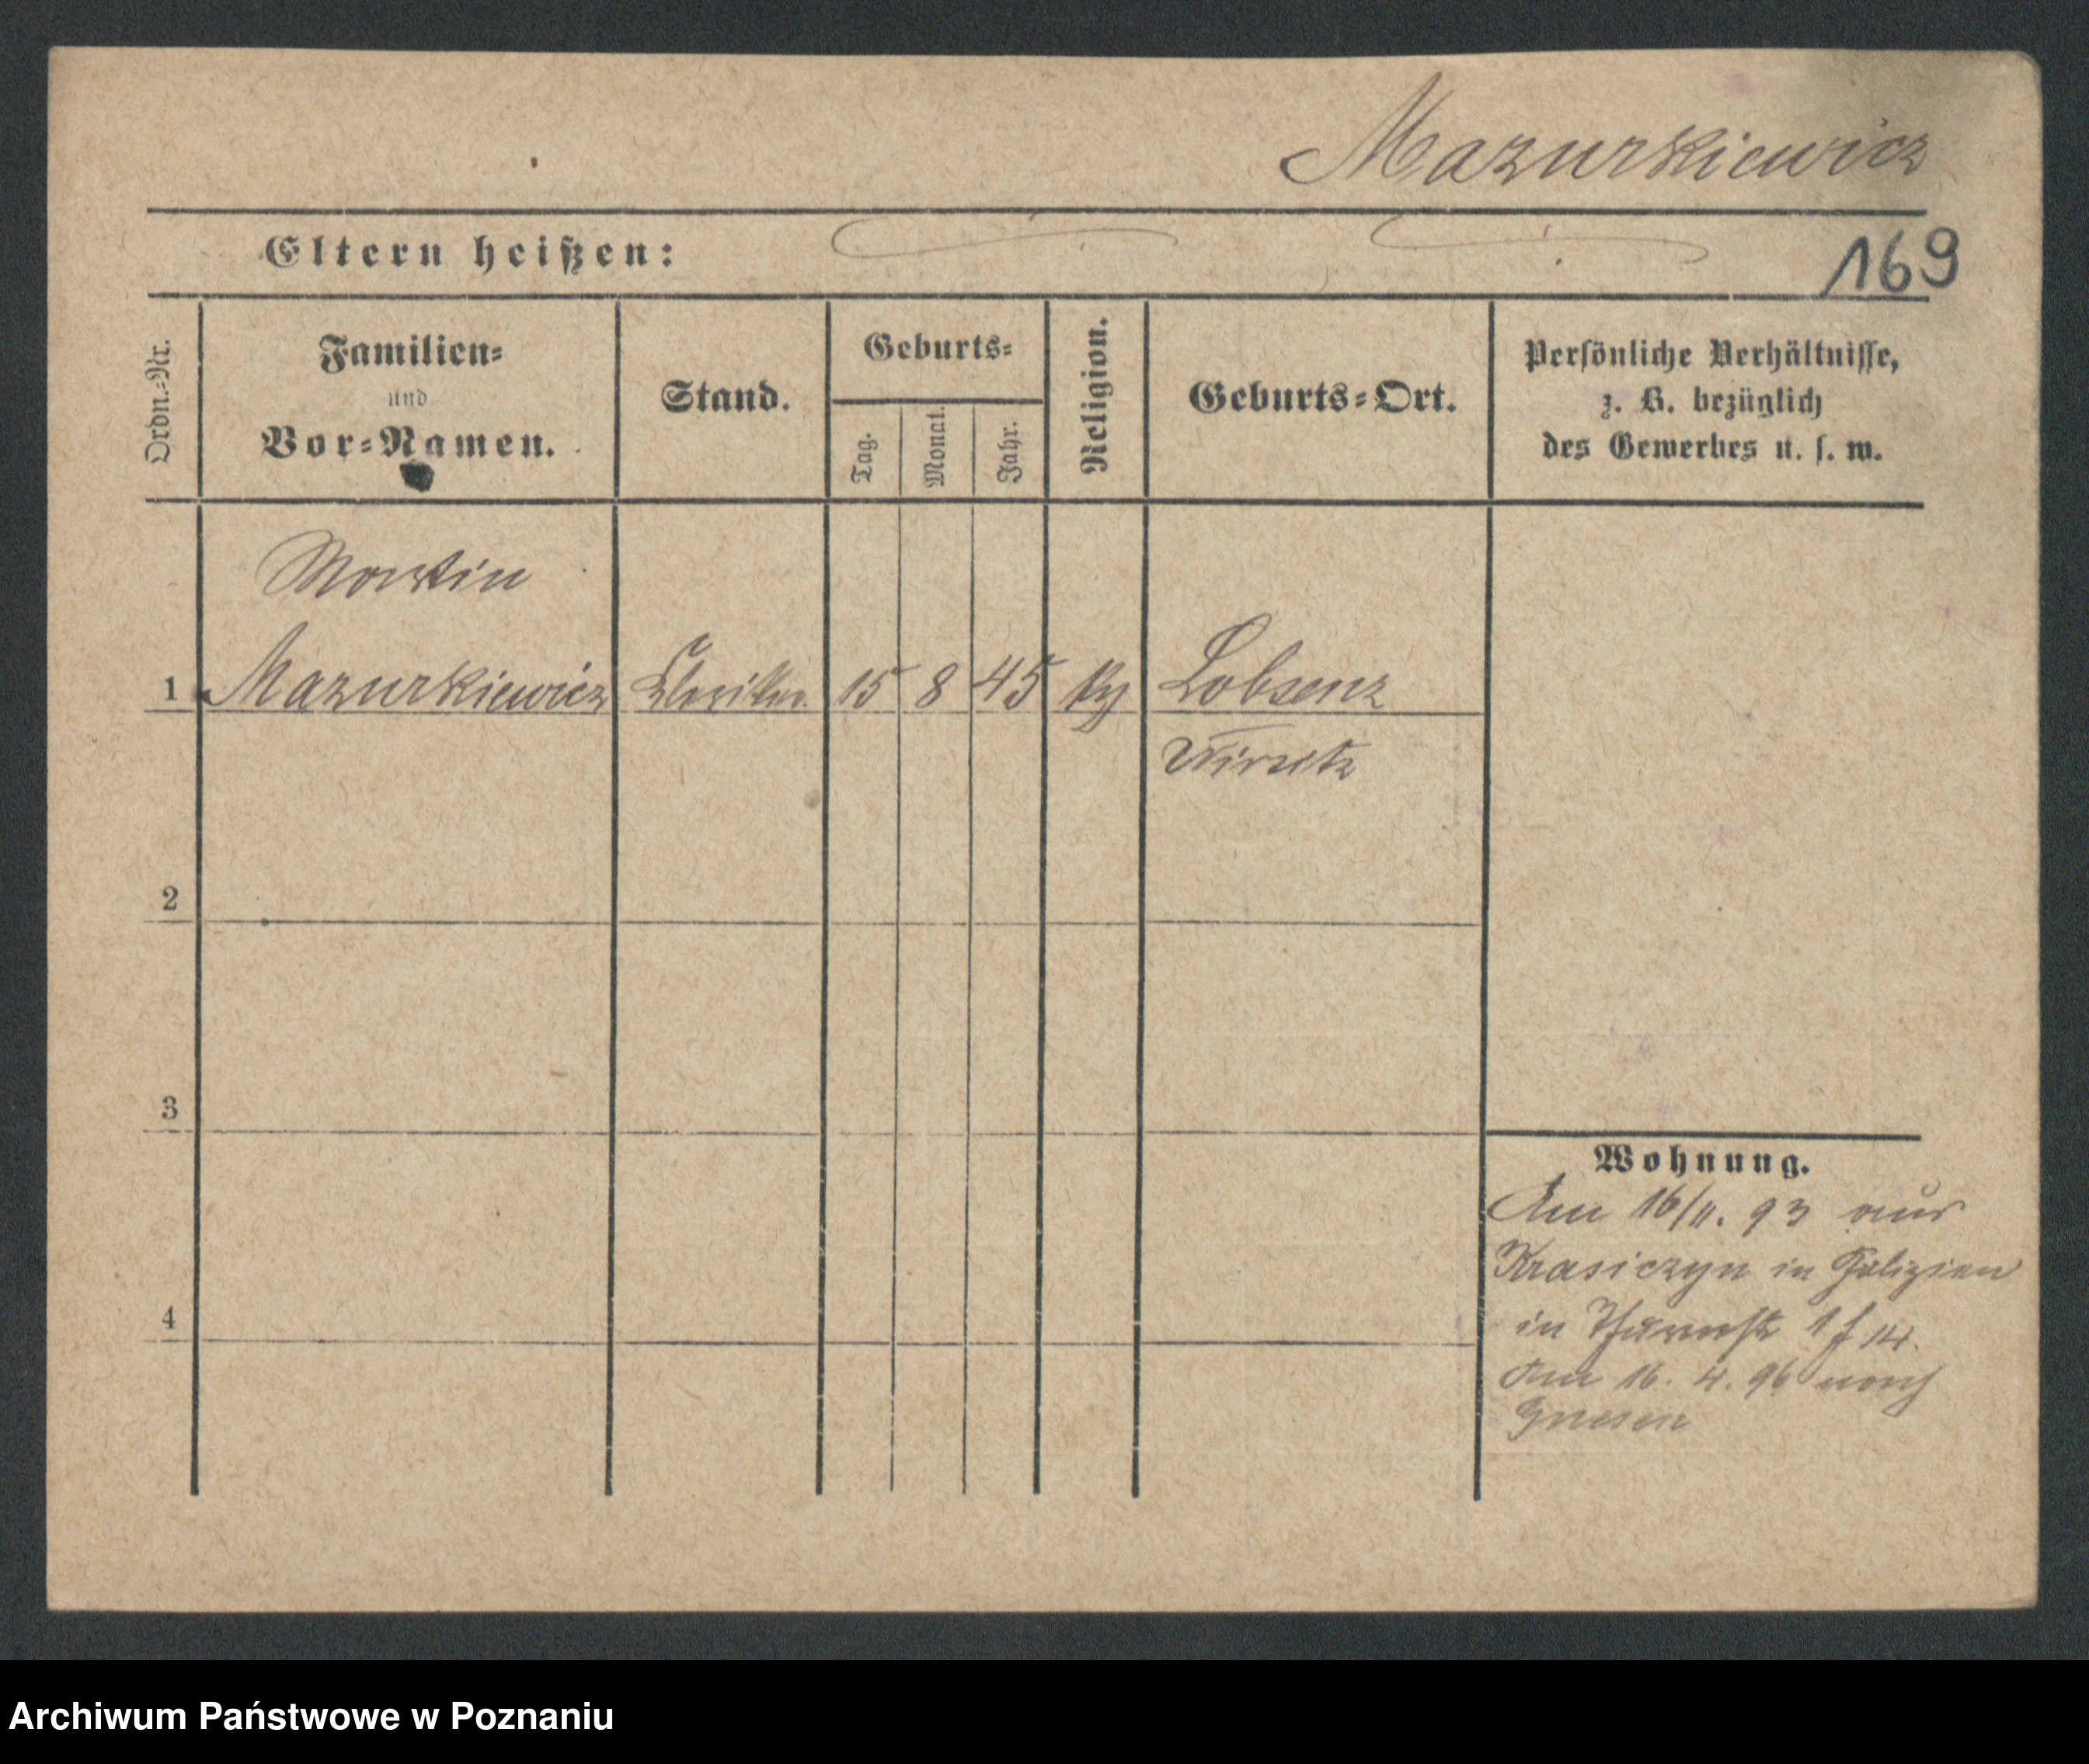 Mazurkiewicz
Eltern heißen:
169
Ordn.-Nr.
Familien-
und
Vor-Namen.
Stand.
Geburts-
Tag.
Monat.
Jahr.
Religion.
Geburts-Ort.
Persönliche Verhältnisse,
z. B. bezüglich
des Gewerbes u. s. w.
Martin
1 Mazurkiewicz Kleriker 15 8 45 Lobsenz
Wirsitz
2
3
4
Wohnung.
Am 16/11. 93 aus
Krasiczyn in Galizien
in Thurmstr 14.
Am 16. 4. 96 nach
Gnesen
Archiwum Państwowe w Poznaniu